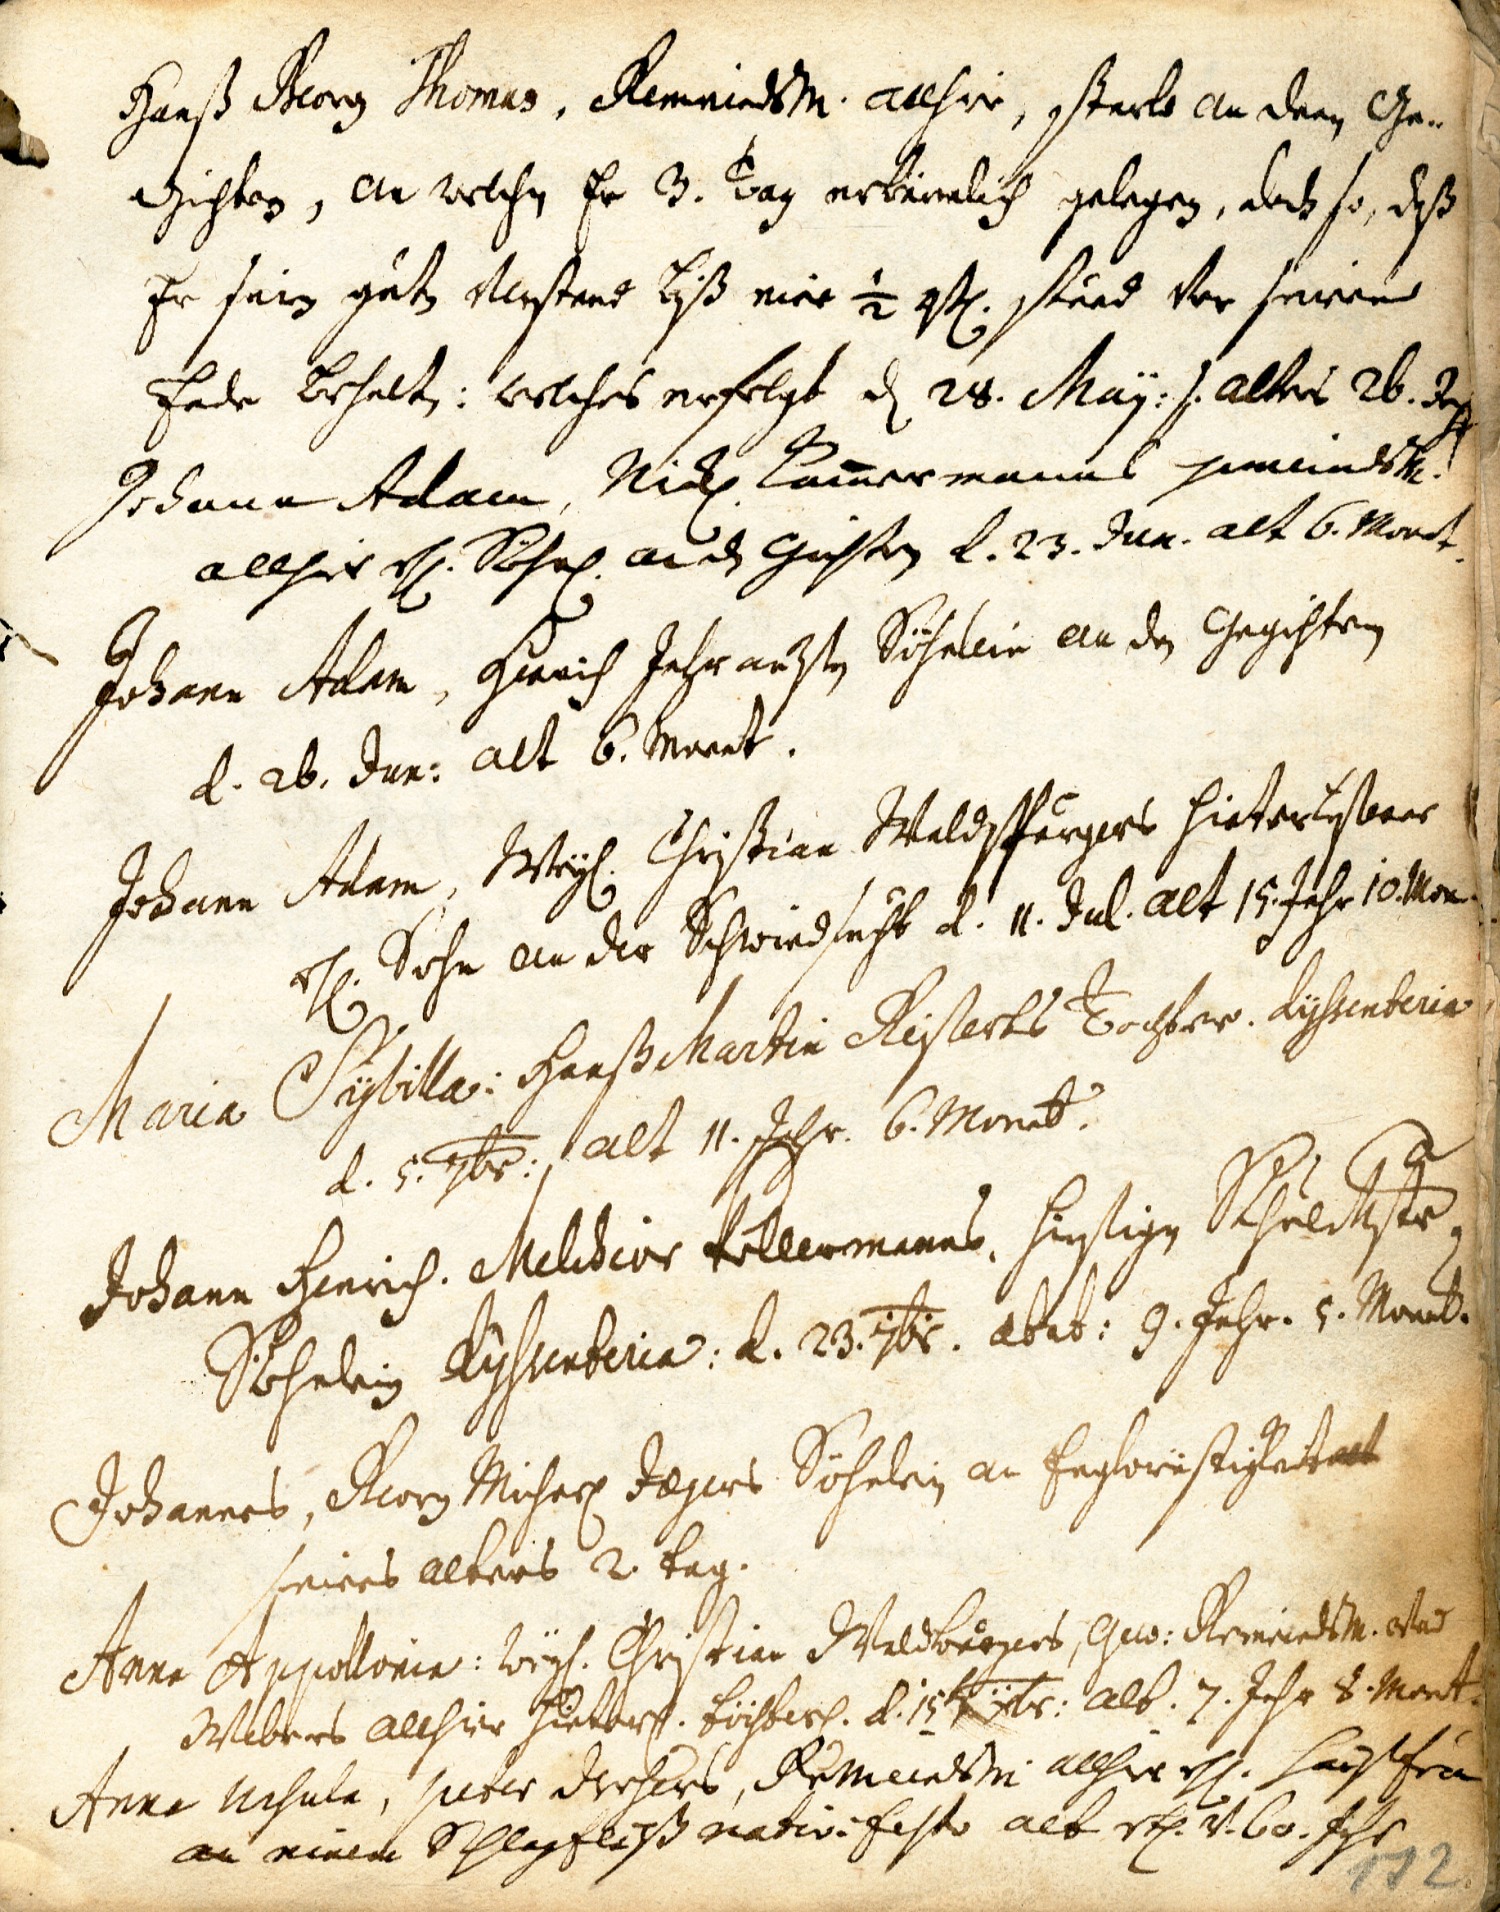 Hanß Georg Thomas, Gemeindsm. allhier, starb an denen Ge-
Gichter, an welchen Er 3. Tag erbärmlich gelegen, doch so, daß
Er sein guten Verstand biß eine ½ stund vor seinem
Ende behalten: welches erfolgt d. 28. Maÿ: s. alters 26. Jahr
Johann Adam, Nicl. Cammermanns gemeindsm.
allhier ehl. Söhnl. an den Gichtern d. 23. Jun. alt 6. Monat.
Johann Adam, Henrich Söhnlein an den Gegichtern
d. 26. Jun: alt 6. Monat.
Johann Adam, Weyl. Christian Waldspurgers hinterlaßener
ehl. Sohn an der Schwindsucht d. 11. Jul. alt 15. Jahr 10. Mon.
Maria Sÿbilla: Hanß Martin Tochter. dÿssenteria
d. 5. 7br: alt 11. Jahr. 6. Monat.
Johann Henrich. Melchior Kellermanns, hiesigen Schuldieners
Söhnlein dÿssenteria: d. 23. 7br. aetat: 9. Jahr. 5. Monat.
Johannes, Georg Michael Jægers Söhnlein an
seines alters 2. tag.
Anna Appollonia: weyl. Christian Waldburgers, gew: Gemeindsm. und
Webers allhier hinterl. töchterl. d. 15 alt. 7. Jahr 8. Monat.
Anna Ursula, peter Gemeindsm allhier ehl. Haußfrau
an einem Schlagfluß nativ: festo alt 60. Jahr
112